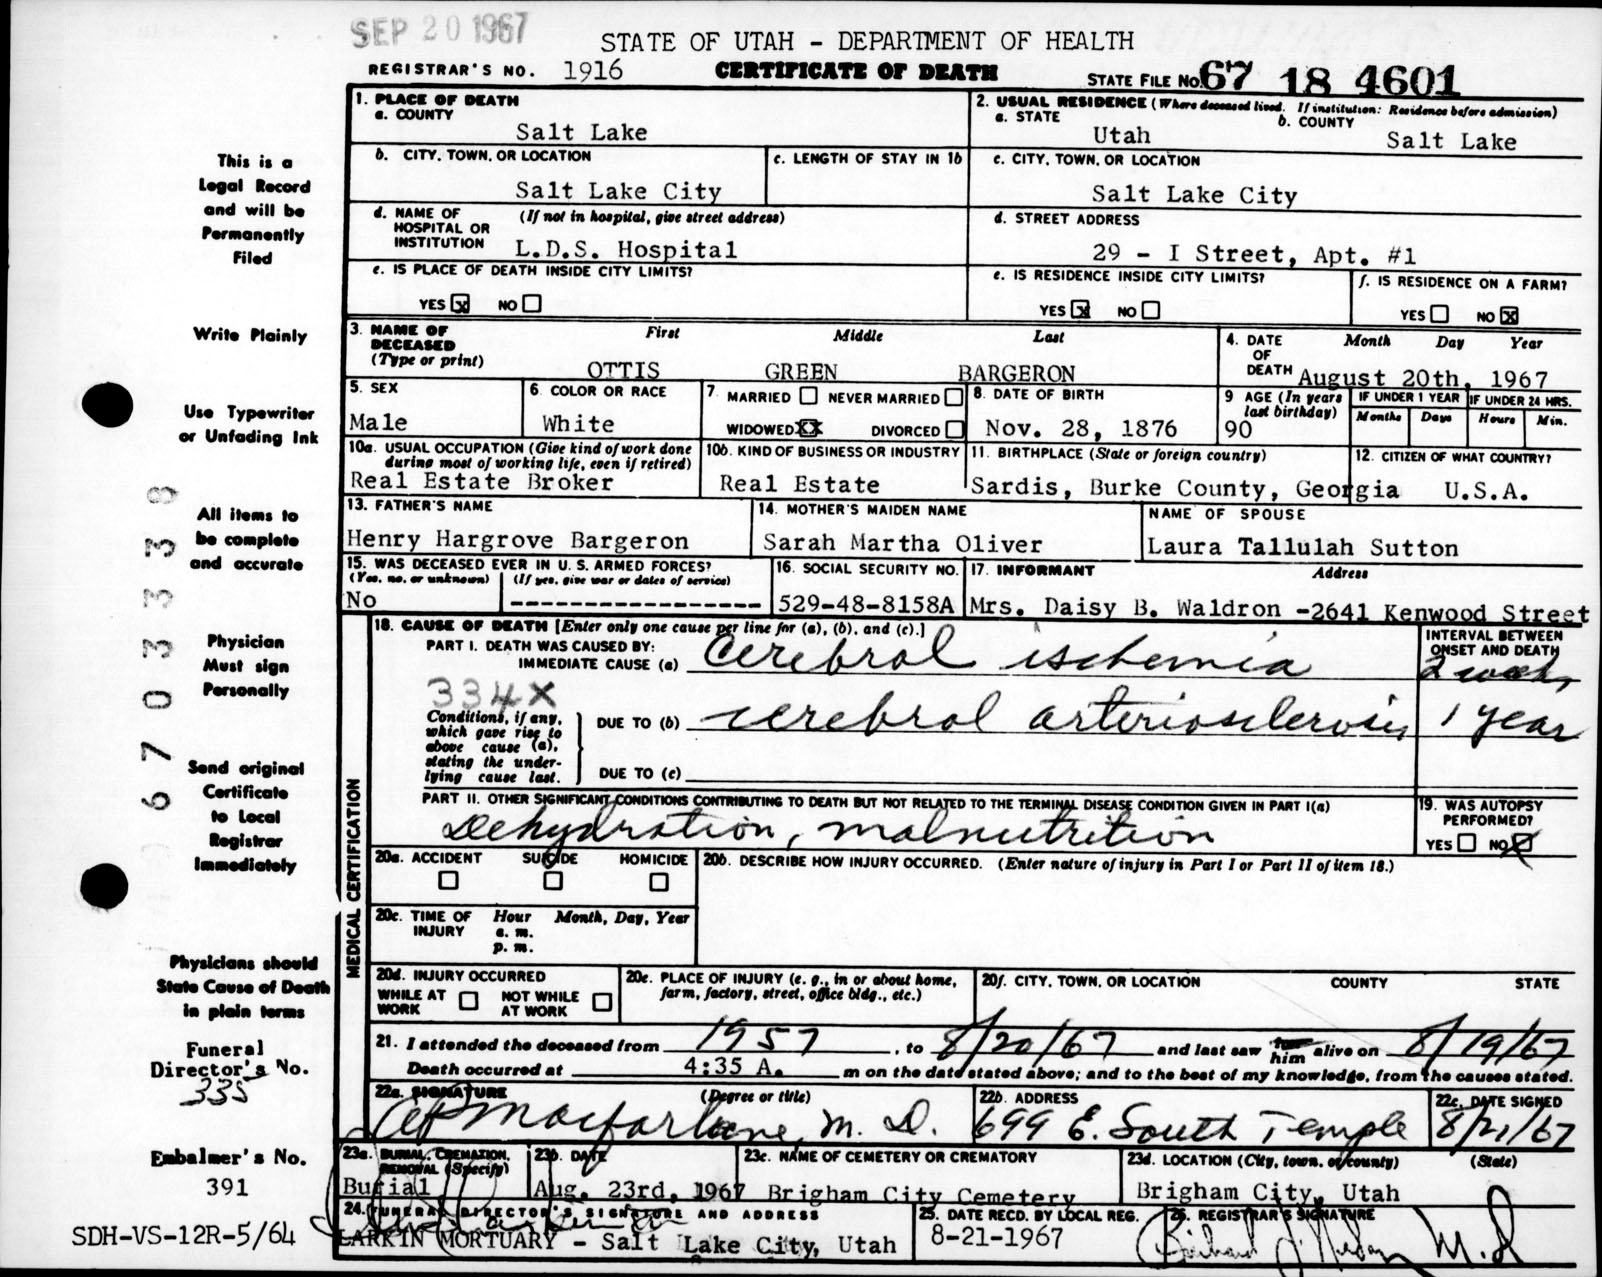 SEP 20 1967
STATE OF UTAH - DEPARTMENT OF HEALTH
REGISTRAR'S NO. 1916 CERTIFICATE OF DEATH STATE FILE No. 67 18 4601
This is a Legal Record and will be Permanently Filed
Write Plainly
Use Typewriter or Unfading Ink
All items to be complete and accurate
Physician Must sign Personally
Send original Certificate to Local Registrar Immediately
Physicians should State Cause of Death in plain terms
Funeral Director's No.
335
Embalmer's No.
391
SDH-VS-12R-5/64
67033338
1. PLACE OF DEATH
a. COUNTY
Salt Lake
2. USUAL RESIDENCE (Where deceased lived. If institution: Residence before admission)
a. STATE b. COUNTY
Utah Salt Lake
b. CITY, TOWN, OR LOCATION c. LENGTH OF STAY IN 1b
Salt Lake City
c. CITY, TOWN, OR LOCATION
Salt Lake City
d. NAME OF HOSPITAL OR INSTITUTION (If not in hospital, give street address)
L.D.S. Hospital
d. STREET ADDRESS
29 - I Street, Apt. #1
e. IS PLACE OF DEATH INSIDE CITY LIMITS?
YES X NO
e. IS RESIDENCE INSIDE CITY LIMITS?
YES X NO
f. IS RESIDENCE ON A FARM?
YES NO X
3. NAME OF DECEASED (Type or print) First Middle Last
OTTIS GREEN BARGERON
4. DATE OF DEATH Month Day Year
August 20th, 1967
5. SEX
Male
6. COLOR OR RACE
White
7. MARRIED NEVER MARRIED
WIDOWED XX DIVORCED
8. DATE OF BIRTH
Nov. 28, 1876
9 AGE (In years last birthday)
90
IF UNDER 1 YEAR IF UNDER 24 HRS.
Months Days Hours Min.
10a. USUAL OCCUPATION (Give kind of work done during most of working life, even if retired)
Real Estate Broker
10b. KIND OF BUSINESS OR INDUSTRY
Real Estate
11. BIRTHPLACE (State or foreign country)
Sardis, Burke County, Georgia
12. CITIZEN OF WHAT COUNTRY?
U.S.A.
13. FATHER'S NAME
Henry Hargrove Bargeron
14. MOTHER'S MAIDEN NAME
Sarah Martha Oliver
NAME OF SPOUSE
Laura Tallulah Sutton
15. WAS DECEASED EVER IN U. S. ARMED FORCES?
(Yes, no, or unknown) (If yes, give war or dates of service)
No -----------------
16. SOCIAL SECURITY NO.
529-48-8158A
17. INFORMANT Address
Mrs. Daisy B. Waldron -2641 Kenwood Street
MEDICAL CERTIFICATION
18. CAUSE OF DEATH [Enter only one cause per line for (a), (b), and (c).]
INTERVAL BETWEEN ONSET AND DEATH
PART I. DEATH WAS CAUSED BY:
IMMEDIATE CAUSE (a) Cerebral ischemia 2 weeks
334X
Conditions, if any, which gave rise to above cause (a), stating the underlying cause last.
DUE TO (b) cerebral arteriosclerosis 1 year
DUE TO (c)
PART II. OTHER SIGNIFICANT CONDITIONS CONTRIBUTING TO DEATH BUT NOT RELATED TO THE TERMINAL DISEASE CONDITION GIVEN IN PART I(a)
Dehydration, malnutrition
19. WAS AUTOPSY PERFORMED?
YES NO X
20a. ACCIDENT SUICIDE HOMICIDE
20b. DESCRIBE HOW INJURY OCCURRED. (Enter nature of injury in Part I or Part II of item 18.)
20c. TIME OF INJURY Hour Month, Day, Year
a. m.
p. m.
20d. INJURY OCCURRED
WHILE AT WORK NOT WHILE AT WORK
20e. PLACE OF INJURY (e. g., in or about home, farm, factory, street, office bldg., etc.)
20f. CITY, TOWN, OR LOCATION COUNTY STATE
21. I attended the deceased from 1957, to 8/20/67 and last saw him alive on 8/19/67
Death occurred at 4:35 A. m on the date stated above; and to the best of my knowledge, from the causes stated.
22a. SIGNATURE (Degree or title)
Macfarlane, M. D.
22b. ADDRESS
699 E. South Temple
22c. DATE SIGNED
8/21/67
23a. BURIAL, CREMATION, REMOVAL (Specify)
Burial
23b. DATE
Aug. 23rd, 1967
23c. NAME OF CEMETERY OR CREMATORY
Brigham City Cemetery
23d. LOCATION (City, town, or county) (State)
Brigham City, Utah
24. FUNERAL DIRECTOR'S SIGNATURE AND ADDRESS
LARKIN MORTUARY - Salt Lake City, Utah
25. DATE RECD. BY LOCAL REG.
8-21-1967
26. REGISTRAR'S SIGNATURE
M.D.